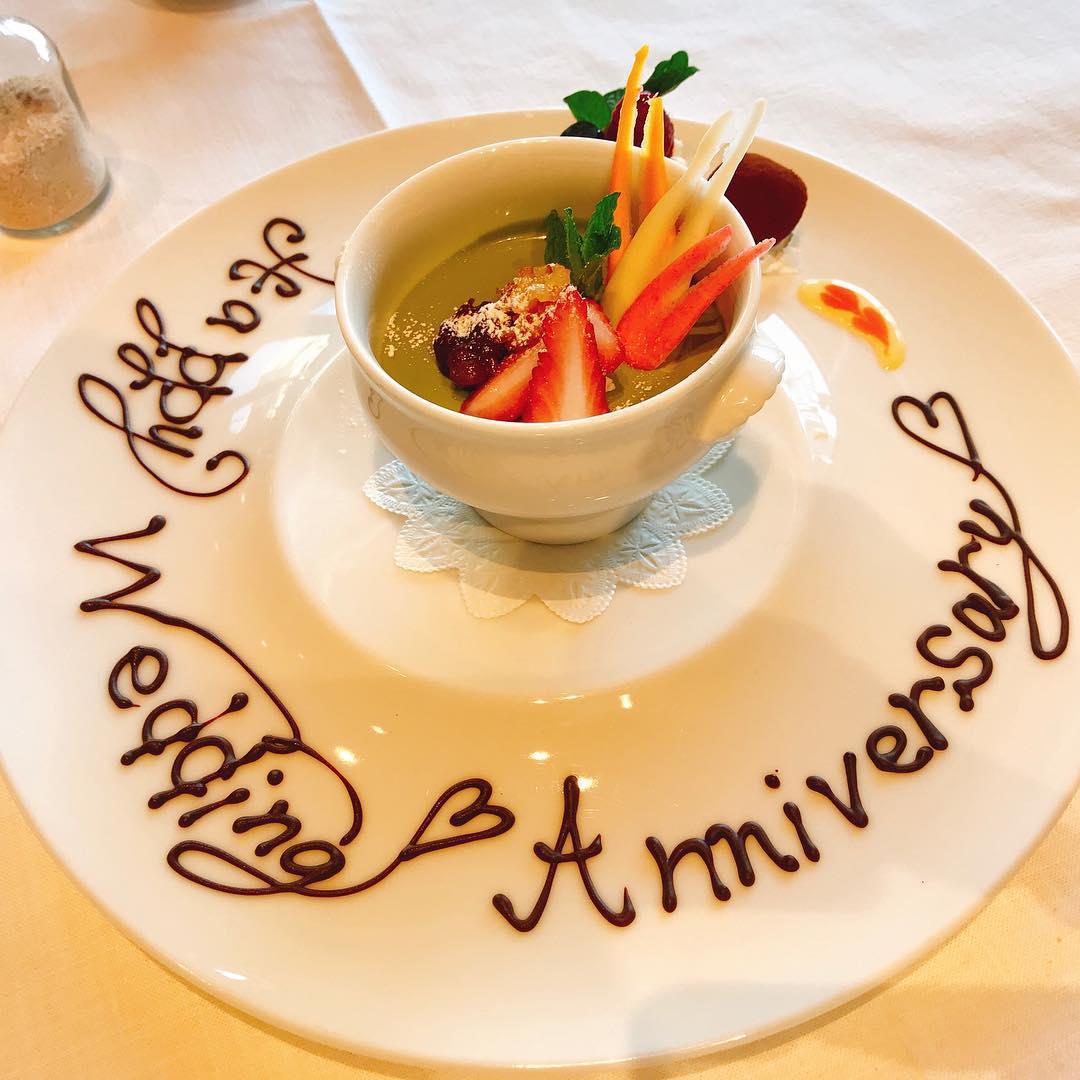 Happy
Wedding
Anniversary